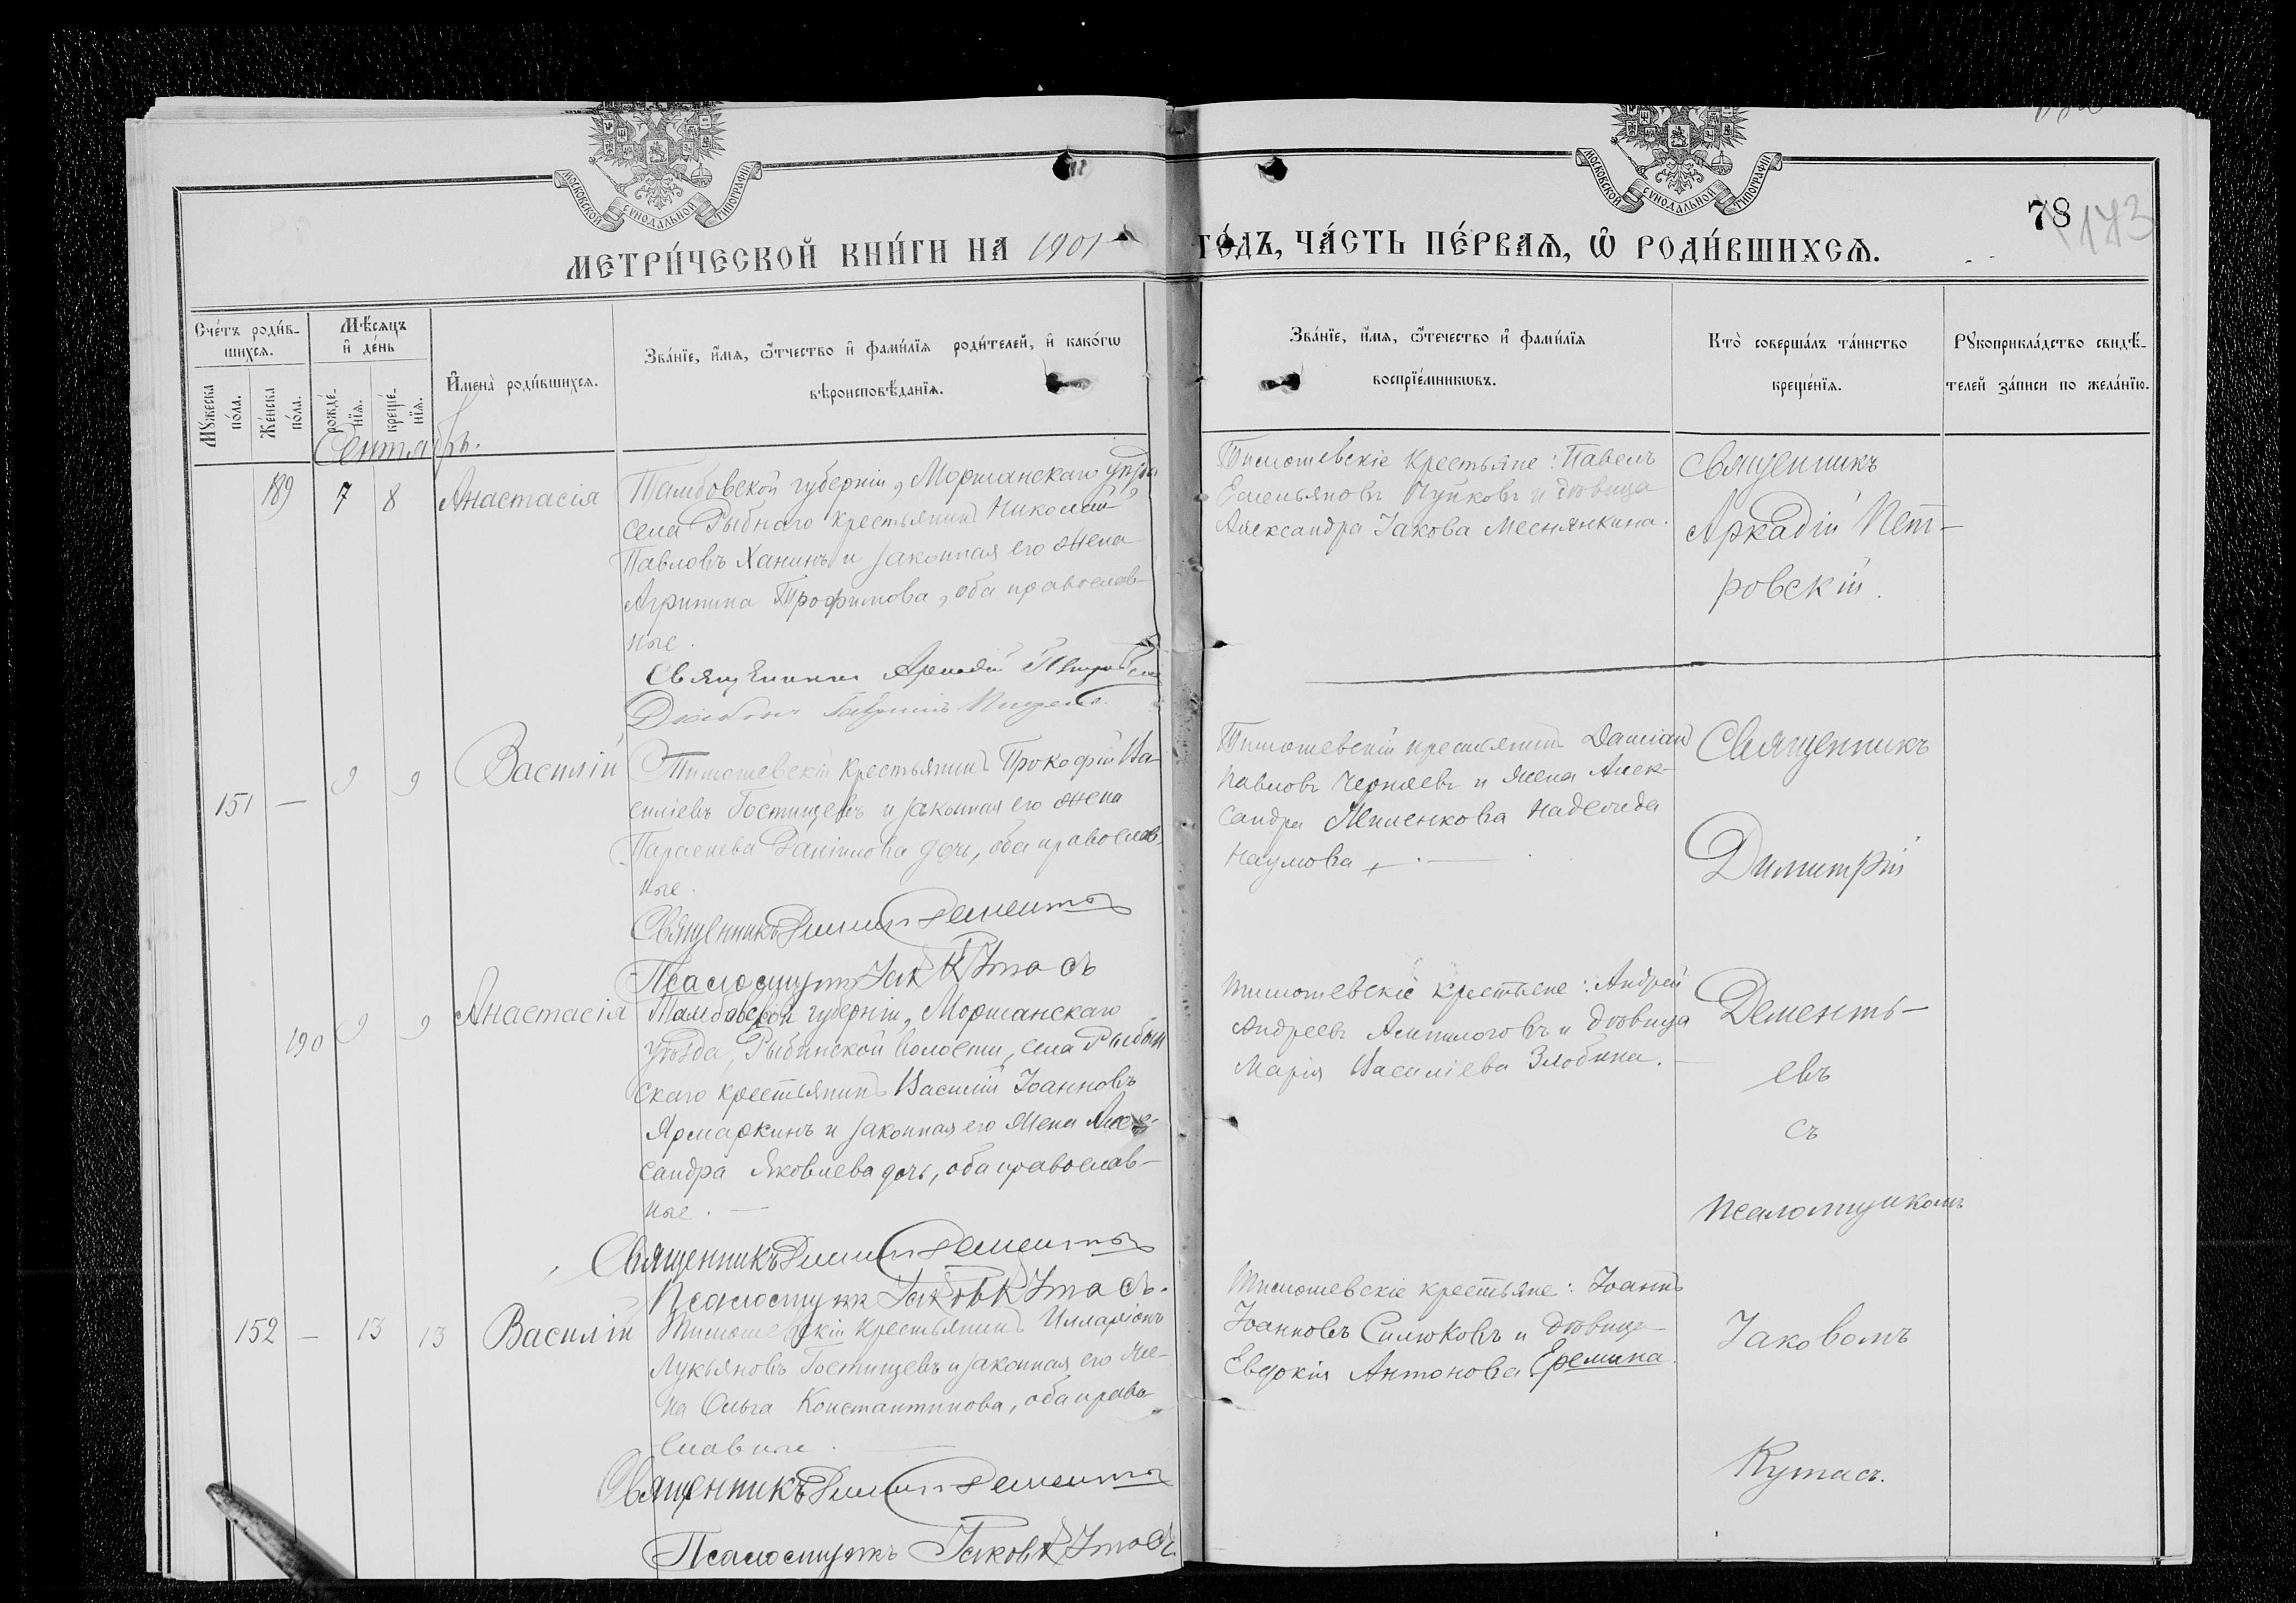 МОСКОВСКОЙ СѴНОДАЛЬНОЙ ТИПОГРАФІИ
МОСКОВСКОЙ СѴНОДАЛЬНОЙ ТИПОГРАФІИ
78
173
МЕТРИ́ЧЕСКОЙ КНИ́ГИ НА 1901 ГО́ДЪ, ЧА́СТЬ ПЕ́РВАѦ, Ѡ҆ РОДИ́ВШИХСѦ.
Сче́тъ роди́в-
шихсѧ.
Мꙋ́жеска по́ла.
Же́нска по́ла.
Мѣ́сѧцъ
и҆ де́нь
рожде́-
нїѧ.
креще́-
нїѧ.
И҆мена̀ роди́вшихсѧ.
Зва́нїе, и҆́мѧ, ѻ҆́тчество и҆ фами́лїѧ роди́телей, и҆ како́гѡ
вѣроисповѣ́данїѧ.
Зва́нїе, и҆́мѧ, ѻ҆́течество и҆ фами́лїѧ
воспрїе́мникѡвъ.
Кто̀ соверша́лъ та́инство
креще́нїѧ.
Рꙋкоприкла́дство свидѣ́-
телей за́писи по жела́нїю.
Сентябрь.
189 7 8 Анастасія
Тамбовской губерніи, Моршанскаго уѣзда
села Рыбнаго крестьянинъ Николай
Павловъ Ханинъ и законная его жена
Агрипина Трофимова, оба православ-
ные.
Священникъ Аркадій Петровскій
Діаконъ
Тимошевскіе Крестьяне: Павелъ
Емельяновъ Чуйковъ и дѣвица
Александра Іакова Меснянкина.
Священникъ
Аркадій Пет-
ровскій.
151 — 9 9 Василій
Тимошевскій Крестьянинъ Прокофій Ва-
силіевъ Гостищевъ и законная его жена
Параскева Даніилова дочь, оба православ-
ные.
Священникъ Димитрій Дементьевъ
Псаломщикъ Іак Кутасъ
Тимошевскій крестьянинъ Даміанъ
Павловъ Черняевъ и жена Алек-
сандра Мешенкова Надежда
Наумова
Священникъ
Димитрій
190 9 9 Анастасія
Тамбовской губерніи, Моршанскаго
уѣзда, Рыбинской волости, села Рыбин
скаго крестьянинъ Василій Іоанновъ
Ярмаркинъ и законная его жена Алек-
сандра Яковлева дочь, оба православ-
ные.
Священникъ Димитрій Дементьевъ
Псаломщикъ Іаковъ Кутасъ.
Тимошевскіе крестьяне: Андрей
Андреевъ и дѣвица
Марія Василіева Злобина.
Дементь-
евъ
съ
псаломщикомъ
152 — 13 13 Василій
Тимошевскій Крестьянинъ Илларіонъ
Лукьяновъ Гостищевъ и законная его же-
на Ольга Константинова, оба право-
славные.
Священникъ Димитрій Дементьевъ
Псаломщикъ Іаковъ Кутасъ
Тимошевскіе крестьяне: Іоаннъ
Іоанновъ Силюковъ и дѣвица
Евдокія Антонова Еремина.
Іаковомъ
Кутасъ.